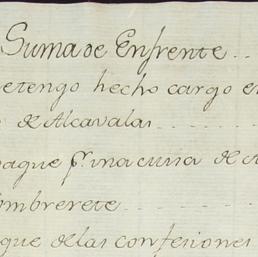 Suma de Enfrente..
etengo hecho cargo en
de Alcavalas.....
pague pr. una cuna de
ombrerete.......
que delas confesiones